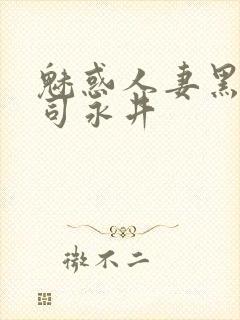 魅惑人妻黑
司永井
微不二